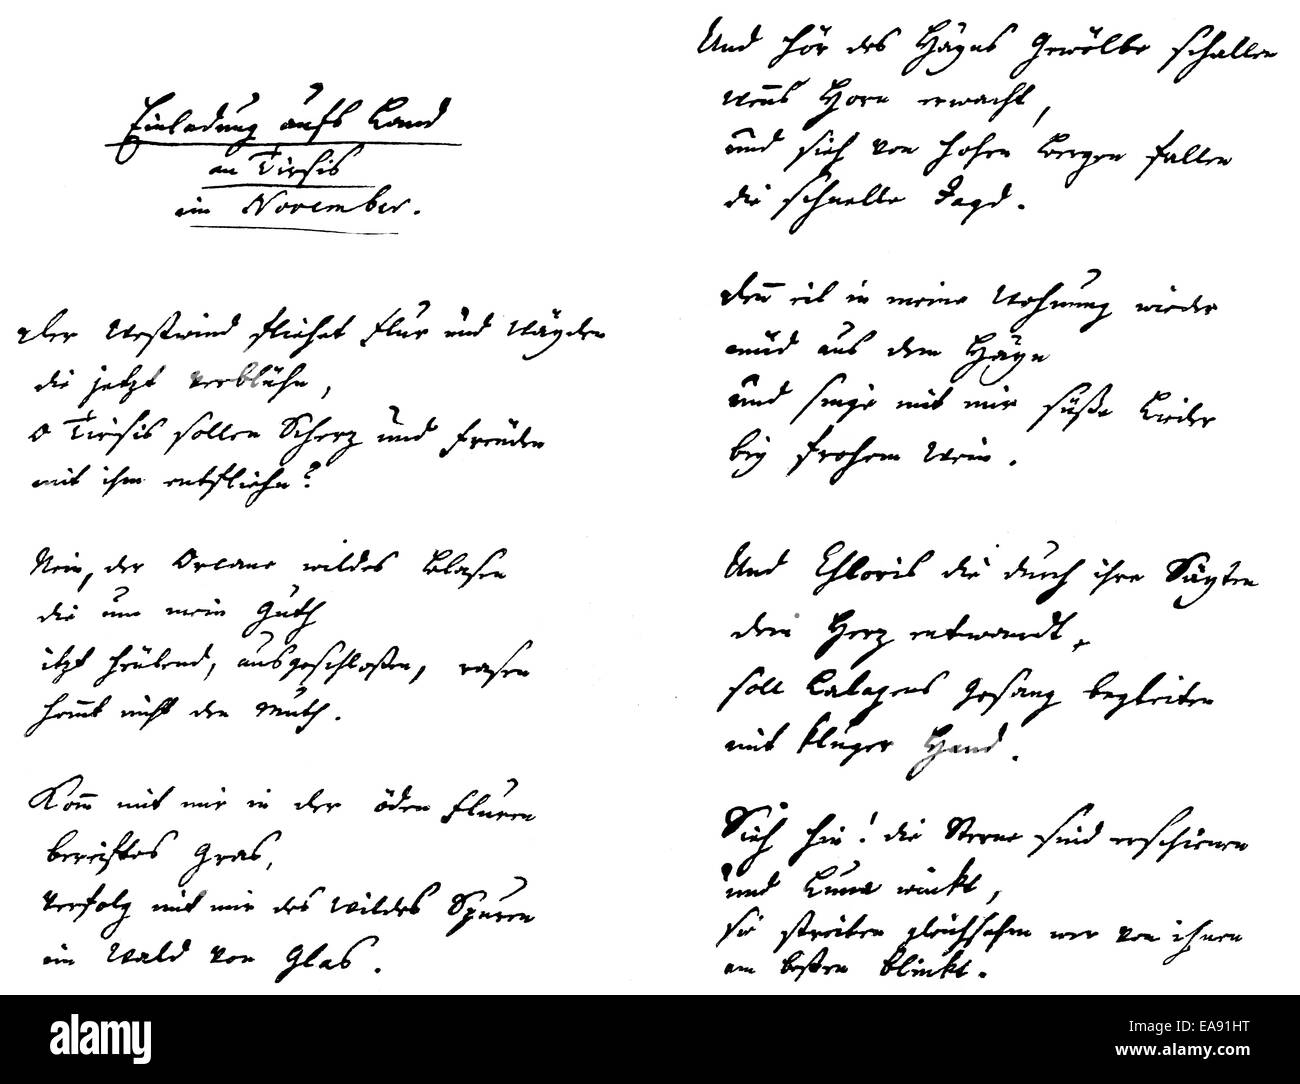 Einladung aufs Land
an Tirsis
im November.
Der Westwind fliehet Flur und Wäyden
die jetzt verblühn,
o Tirsis sollen Scherz und Freuden
mit ihm entfliehn?
Nein, der Orcane wildes Blasen
die um mein Guth
itzt heulend, ausgeschloßen, rasen
hemmt nicht den Muth.
Komm mit mir in der öden Fluren
bereiftes Gras,
verfolg mit mir des Wildes Spuren
im Wald von Glas.
Und hör des Häyns Gewölbe schallen
wenns Horn erwacht,
und sieh von hohen Bergen fallen
die schnelle Jagd.
Denn eil in meine Wohnung wieder
müd aus dem Häyn
und singe mit mir süße Lieder
bey frohem Wein.
Und Chloris die durch ihre Säyten
dein Herz entwandt,
soll Lalagens Gesang begleiten
mit kluger Hand.
Sieh hin! die Sterne sind erschienen
und Luna winkt,
sie streiben gleichsahm wer von ihnen
am besten blinkt.
alamy
a
alamy stock photo
EA91HT
www.alamy.com